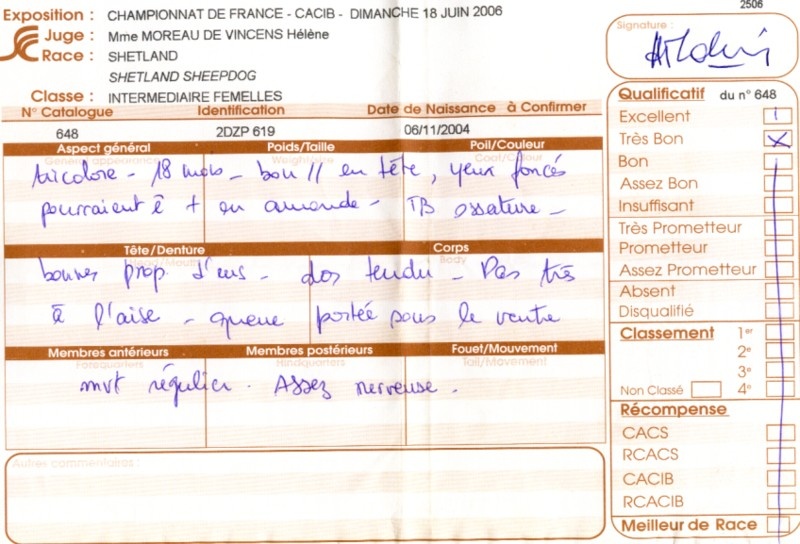 2506
Exposition : CHAMPIONNAT DE FRANCE - CACIB - DIMANCHE 18 JUIN 2006
Juge : Mme MOREAU DE VINCENS Hélène
Race : SHETLAND
SHETLAND SHEEPDOG
Classe : INTERMEDIAIRE FEMELLES
N° Catalogue Identification Date de Naissance à Confirmer
648 2DZP 619 06/11/2004
Aspect général Poids/Taille Poil/Couleur
General appearance Weight/size Coat/Colour
tricolore - 18 mois - bon // en tête, yeux foncés
pourraient ê + en amande - TB ossature -
Tête/Denture Corps
Body
bonnes prop. d'ens - dos tendu - Pas très
à l'aise - queue portée sous le ventre
Membres antérieurs Membres postérieurs Fouet/Mouvement
Forequarters Hindquarters Tail/Movement
mvt régulier. Assez nerveuse.
Autres commentaires :
Signature :
Qualificatif du n° 648
Excellent
Très Bon X
Bon
Assez Bon
Insuffisant
Très Prometteur
Prometteur
Assez Prometteur
Absent
Disqualifié
Classement 1er
2e
3e
Non Classé 4e
Récompense
CACS
RCACS
CACIB
RCACIB
Meilleur de Race